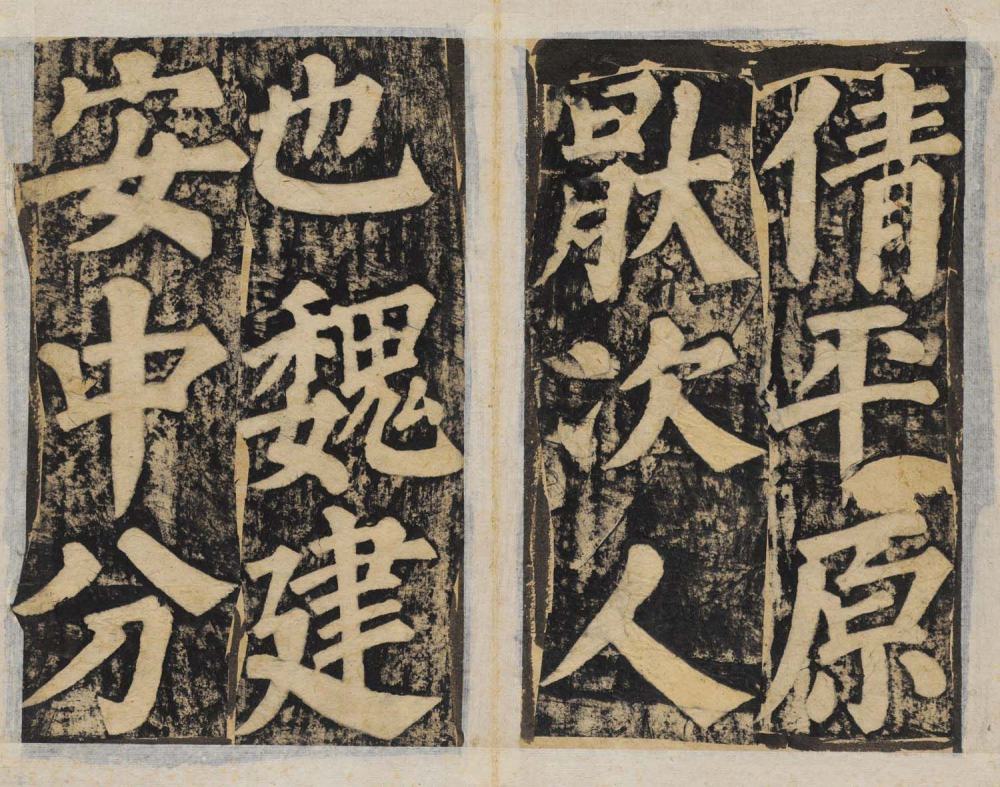 倩平原
猒次人
也魏建
安中分